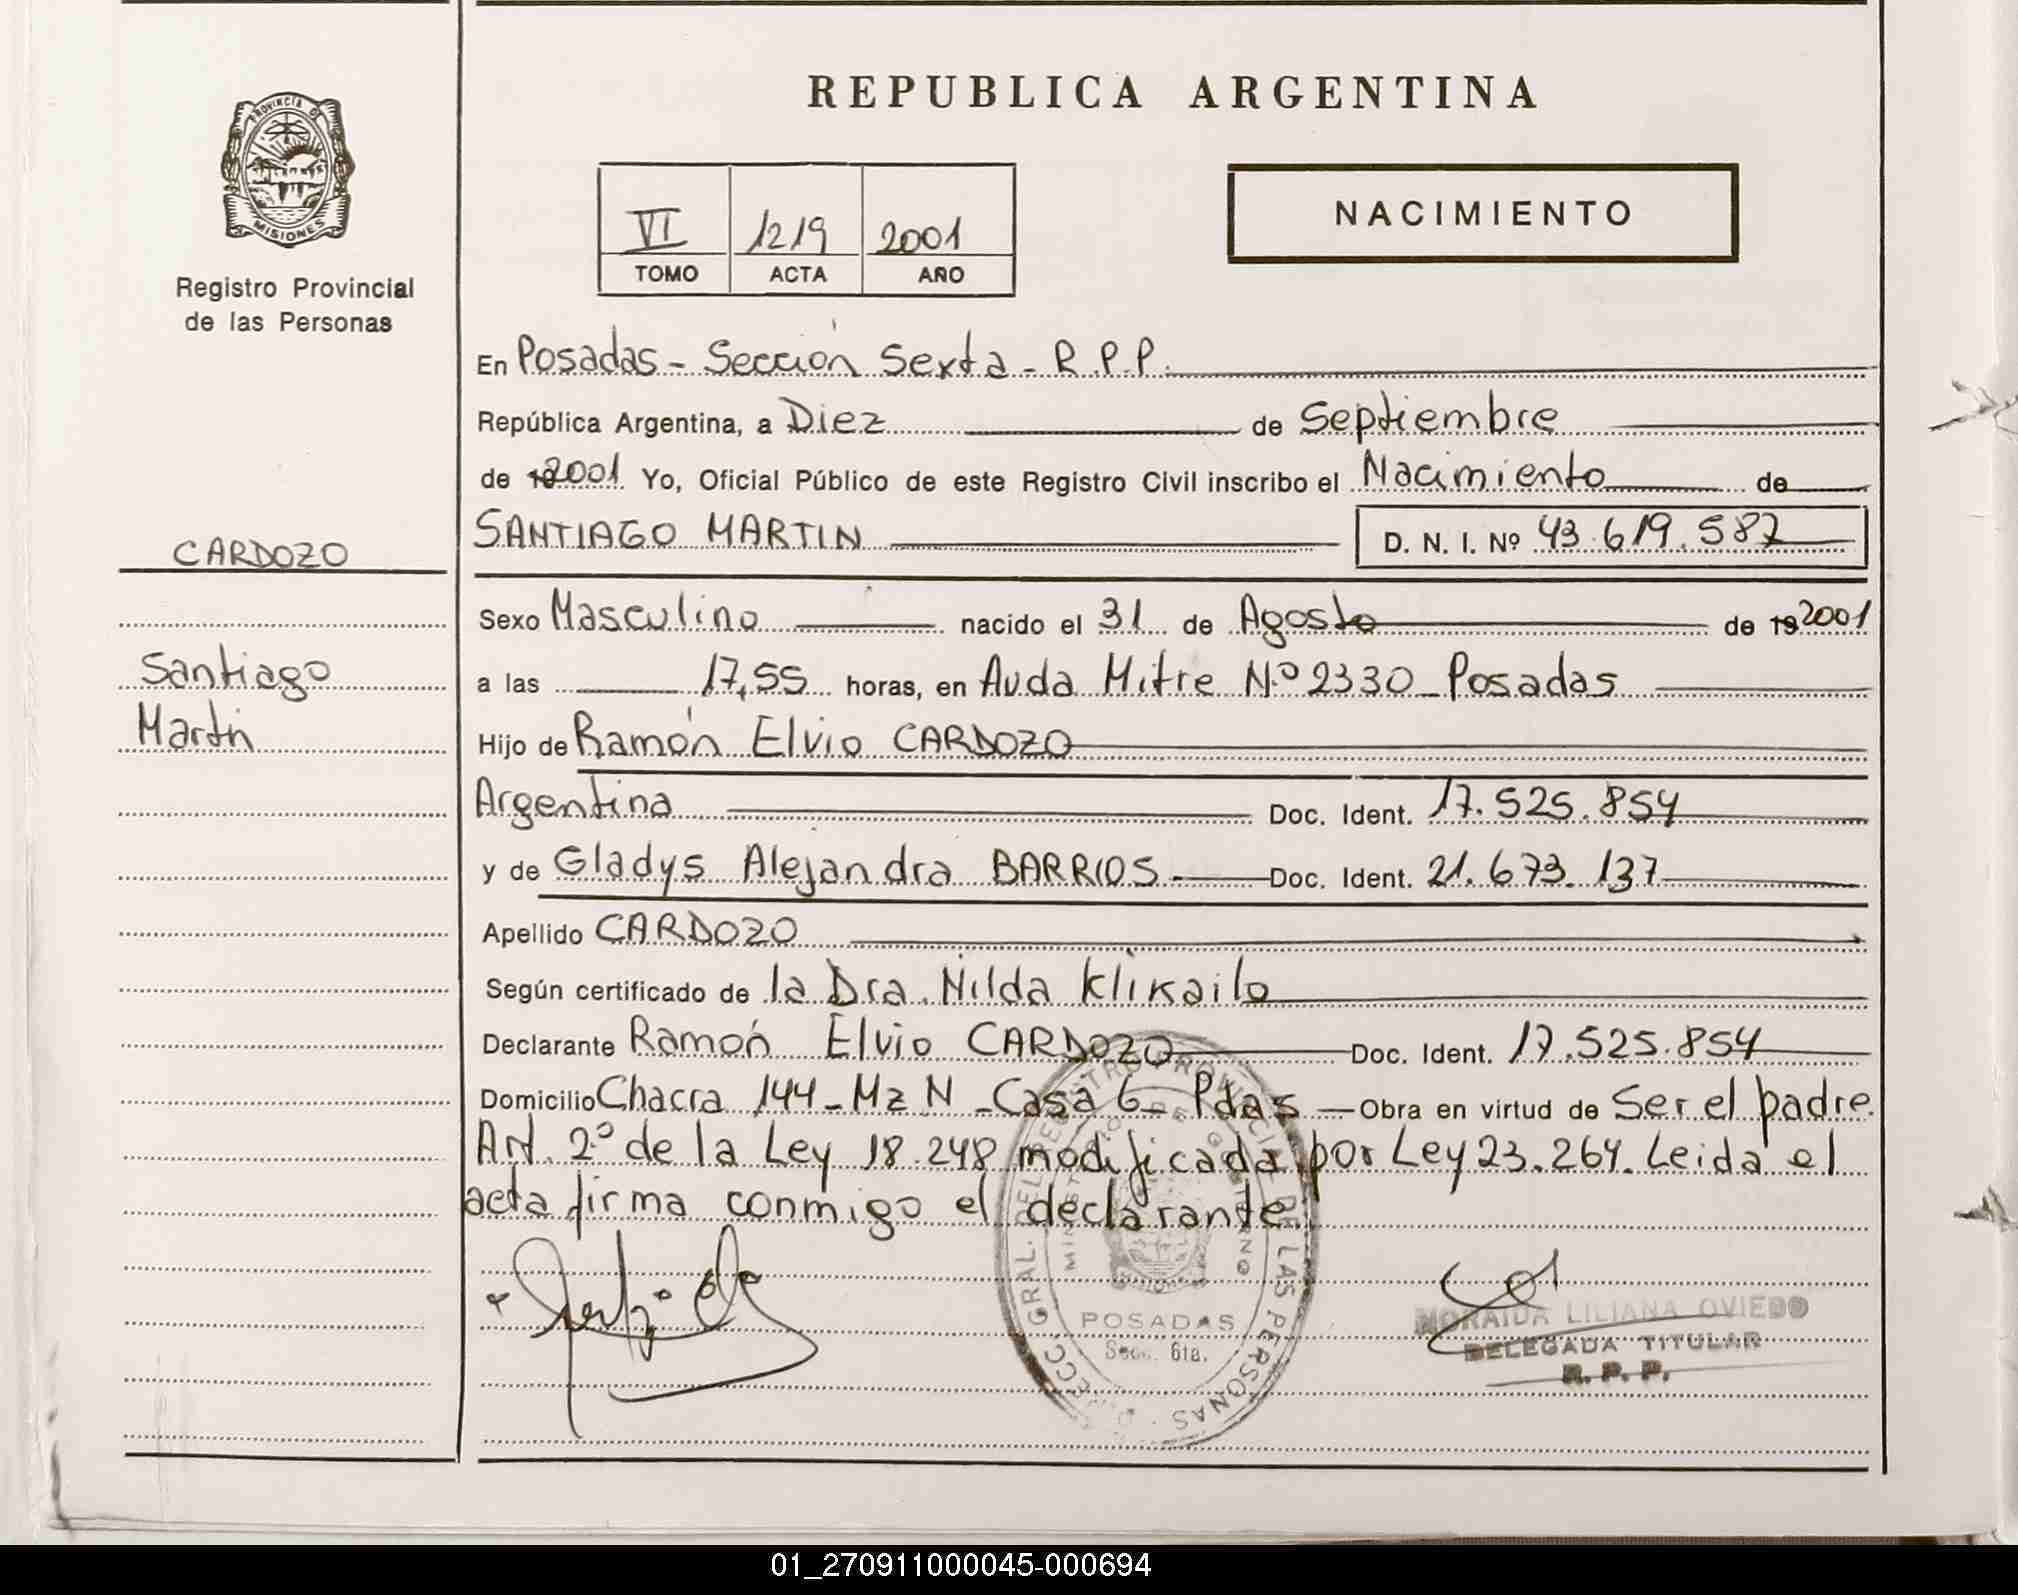 REPUBLICA ARGENTINA
PROVINCIA DE
MISIONES
Registro Provincial
de las Personas
VI 1219 2001
TOMO ACTA AÑO
NACIMIENTO
En Posadas - Sección Sexta - R.P.P.
República Argentina, a Diez de Septiembre
de 19 2001 Yo, Oficial Público de este Registro Civil inscribo el Nacimiento de
SANTIAGO MARTIN D. N. I. Nº 43.619.587
CARDOZO
Santiago
Martin
Sexo Masculino nacido el 31 de Agosto de 19 2001
a las 17,55 horas, en Avda Mitre N.º 2330 - Posadas
Hijo de Ramón Elvio CARDOZO
Argentina Doc. Ident. 17.525.854
y de Gladys Alejandra BARRIOS - Doc. Ident. 21.673.137
Apellido CARDOZO
Según certificado de la Dra. Nilda Klikailo
Declarante Ramón Elvio CARDOZO Doc. Ident. 17.525.854
Domicilio Chacra 144 - Mz N - Casa 6 - Pdas - Obra en virtud de Ser el padre.
Art. 2º de la Ley 18.248 modificada por Ley 23.264. Leida el
acta firma conmigo el declarante.
GRAL. DEL REGISTRO PROVINCIAL DE LAS PERSONAS
MINISTERIO DE GOBIERNO
POSADAS
Secc. 6ta.
MORAIDA LILIANA OVIEDO
DELEGADA TITULAR
R. P. P.
01_270911000045-000694